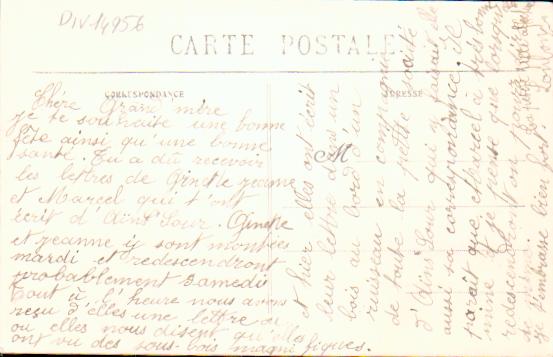 DIV-14956
CARTE POSTALE
CORRESPONDANCE
ADRESSE
M
Chère Grand mère
je te souhaite une bonne
fête ainsi qu'une bonne
santé. Tu a dû recevoir
les lettres de Ginette Jeanne
et Marcel qui t'ont
écrit d'Aïns Sour. Ginette
et Jeanne y sont montées
mardi et redescendront
probablement Samedi
Tout à l'heure nous avons
reçu d'elles une lettre
ou elles nous disent qu'elles
ont vu des sous-bois magnifiques.
et hier elles ont écrit
leur lettre dans un
bois au bord d'un
ruisseau en compagnie
de toute la petite société
d'Aïns Sour qui y faisait
aussi sa correspondance. Il
paraît que Marcel a très bonne
mine et je pense que lorsqu'ils
redescendront on
je t'embrasse bien fort